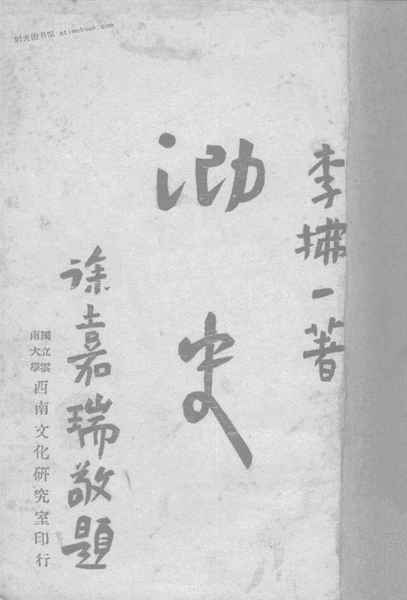 时光图书馆 atimebook.com
李拂一著
泐史
徐嘉瑞敬題
國立雲南大學西南文化研究室印行